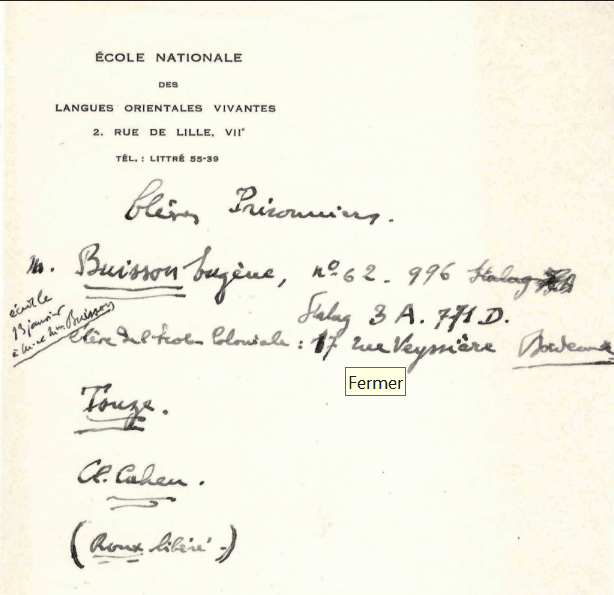 ÉCOLE NATIONALE
DES
LANGUES ORIENTALES VIVANTES
2. RUE DE LILLE, VIIᵉ
TÉL. : LITTRÉ 55-39
Élèves Prisonniers.
M. Buisson Eugène, nº 62.996 Stalag
Stalag 3 A. 771 D.
écrit le
13 janvier
à Buisson
Élève de l'École Coloniale : 17 rue Veyssière Bordeaux
Fermer
Touze.
Cl. Cahen.
(Roux libéré -)